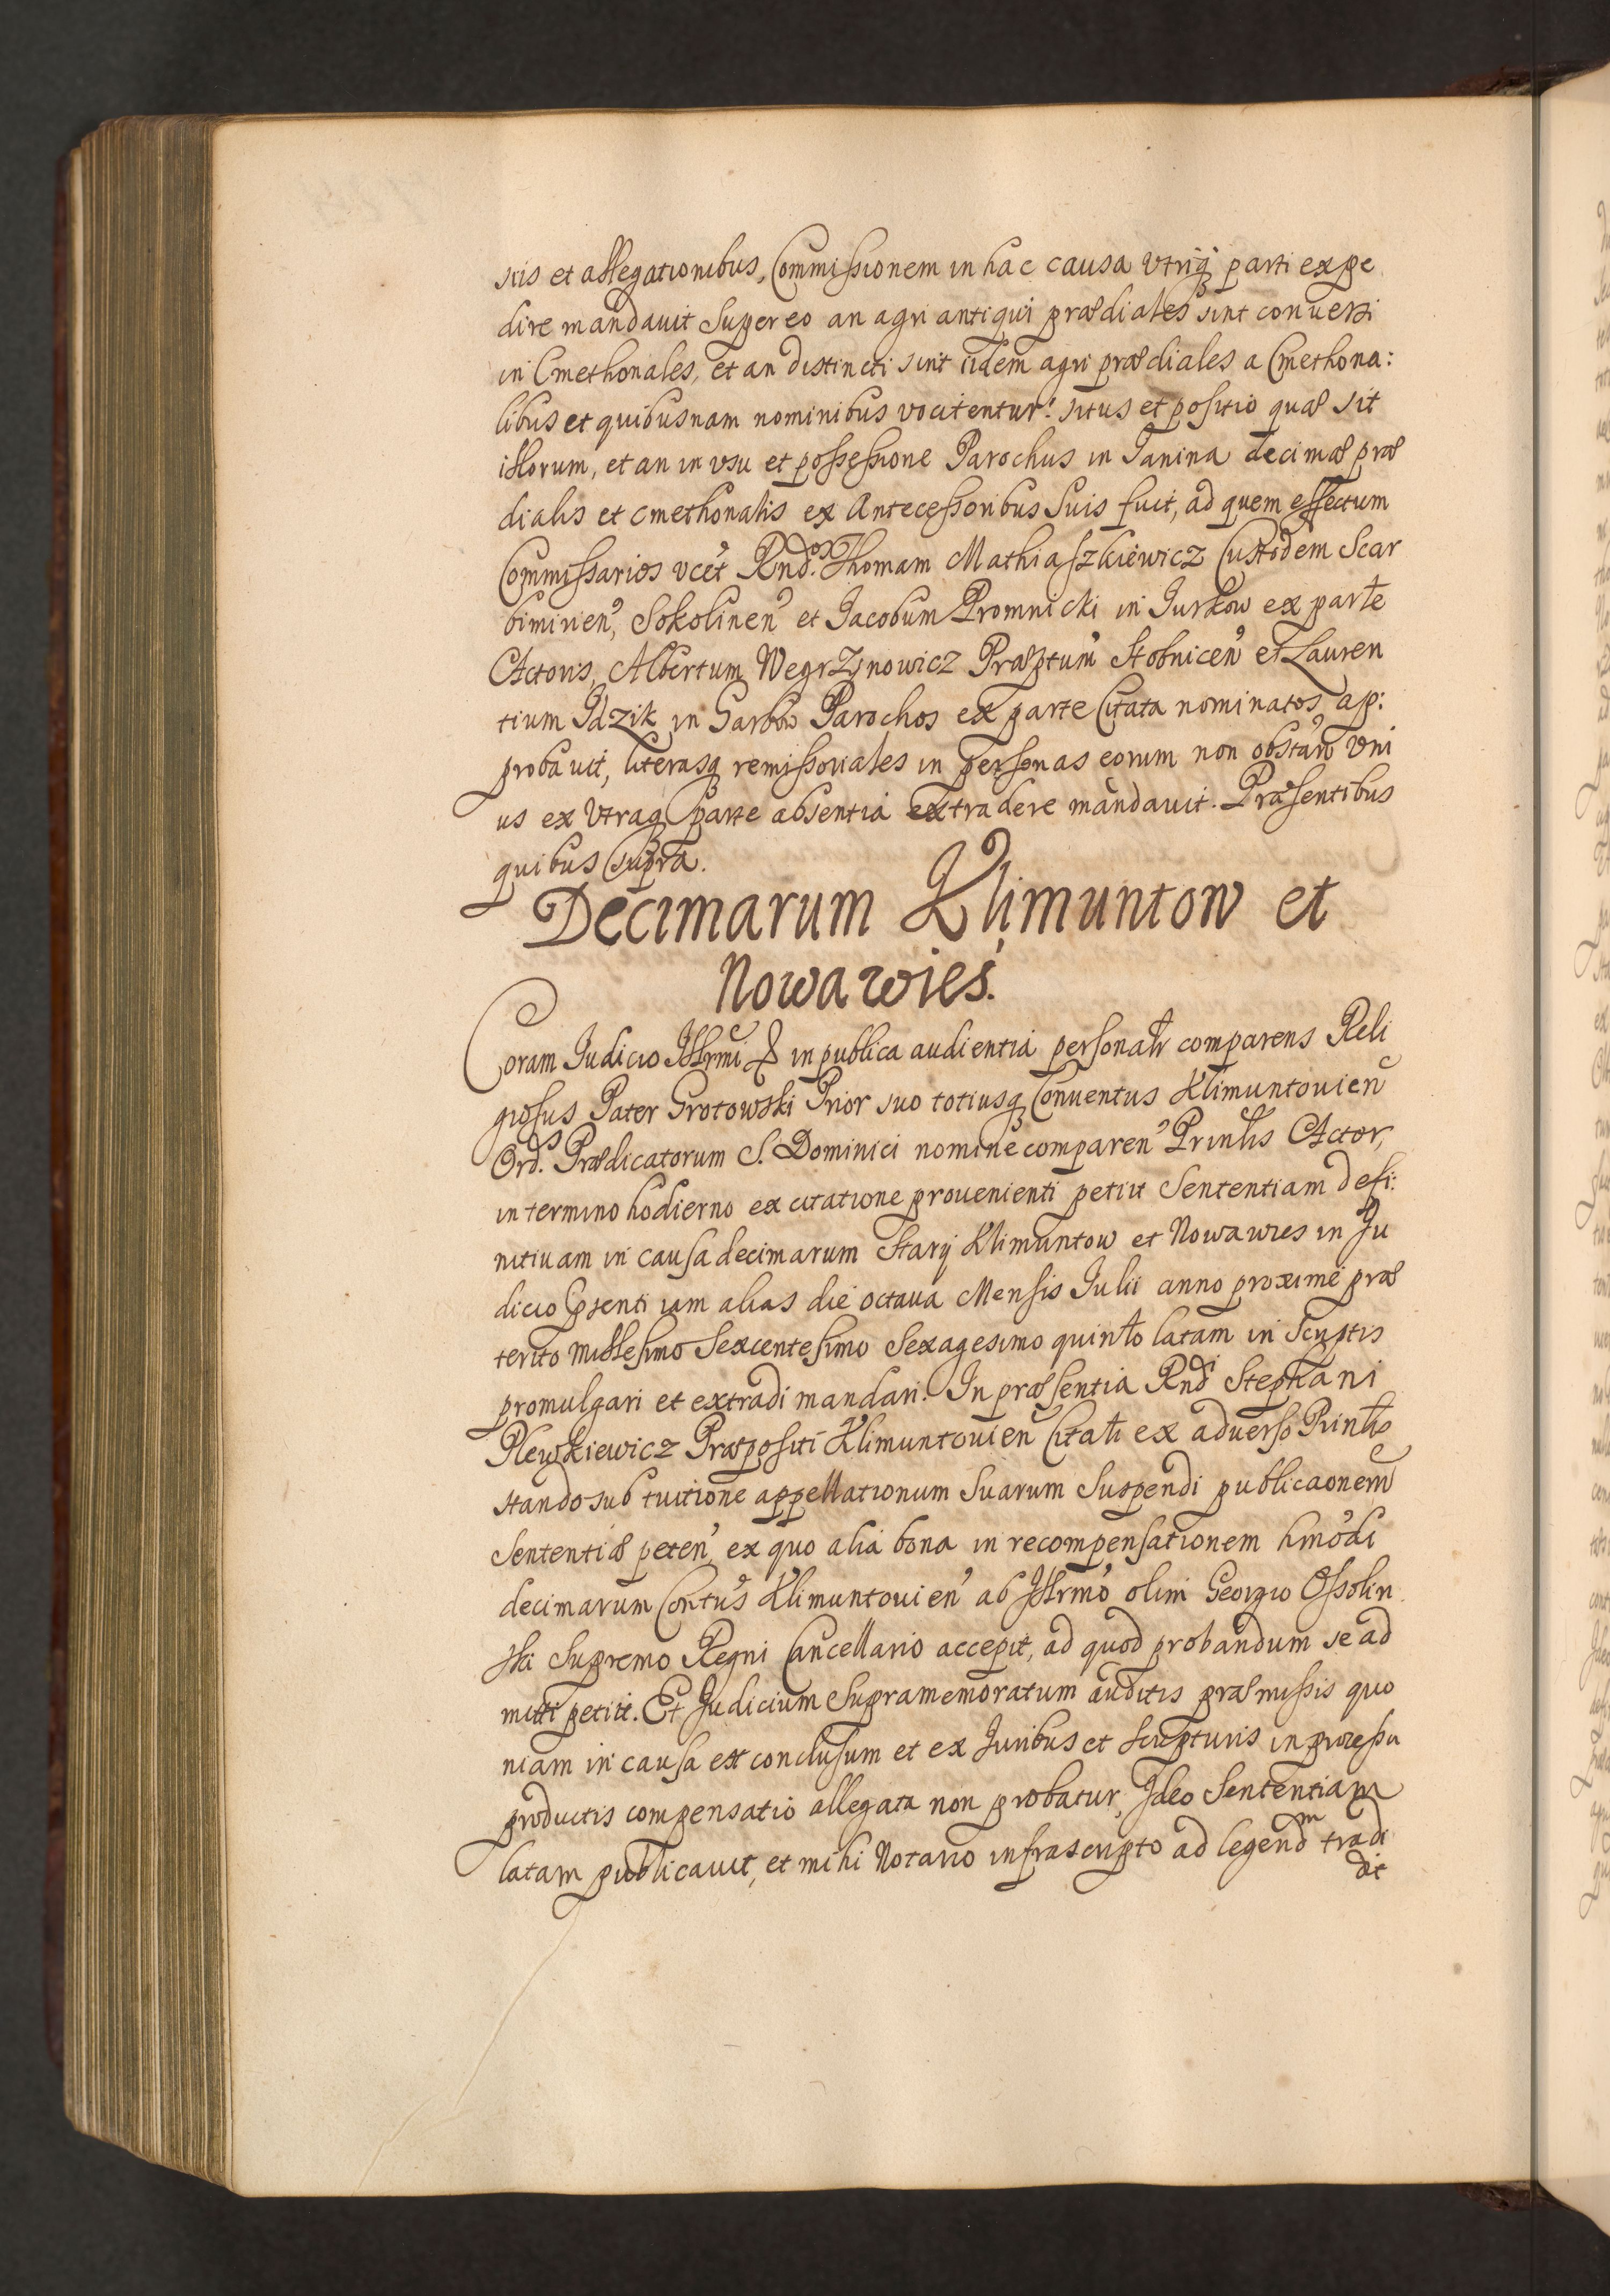 siis et allegationibus, Commissionem in hac causa vtriq parti expe
dire mandauit super eo an agri antiqui prædiales sint conuersi
in Cmethonales, et an distincti sint iidem agri prædiales a Cmethona:
libus et quibusnam nominibus vocitentur? situs et positio quæ sit
illorum, et an in vsu et possessione Parochus in Janina decimæ præ
dialis et cmethonalis ex Antecessoribus Suis fuit, ad quem effectum
Commissarios vcet Rndos Thomam Mathiaszkiewicz Custodem Scar
bimirien, Sokolinen et Jacobum Promnicki in Jurkow ex parte
Actoris, Albertum Wegrzynowicz Præptum Stobnicen et Lauren
tium Idzik in Garbow Parochos ex parte Citata nominatos ap:
probauit, literasq remissoriales in personas eorum non obstan vni
us ex vtraq parte absentia extradere mandauit. Præsentibus
quibus supra.
Decimarum Klimuntow et
Nowawieś.
Coram Judicio Illrmi & in publica audientia personalr comparens Reli
giosus Pater Grotowski Prior suo totiusq Conuentus Klimuntouien
Ords. Prædicatorum S. Dominici nomine comparen Prinlis Actor,
in termino hodierno ex citatione prouenienti petiit Sententiam defi:
nitiuam in causa decimarum Starij Klimuntow et Nowawies in Ju
dicio psenti iam alias die octaua Mensis Julii anno proxime præ
terito Millesimo Sexcentesimo Sexagesimo quinto latam in Scriptis
promulgari et extradi mandari. In præsentia Rndi Stephani
Plewkiewicz Præpositi Klimuntouien Citati ex aduerso Prinlr
stando sub tuitione appellationum Suarum Suspendi publicaonem
Sententiæ peten, ex quo alia bona in recompensationem hmodi
decimarum Contus Klimuntouien ab Illrmo olim Georgio Ossolin
ski Supremo Regni Cancellario accepit, ad quod probandum se ad
mitti petiit. Et Judicium Supramemoratum auditis præmissis quo
niam in causa est conclusum et ex Juribus et Scripturis in processu
productis compensatio allegata non probatur, Ideo Sententiam
latam publicauit, et mihi Notario infrascripto ad legendm tradi
dit